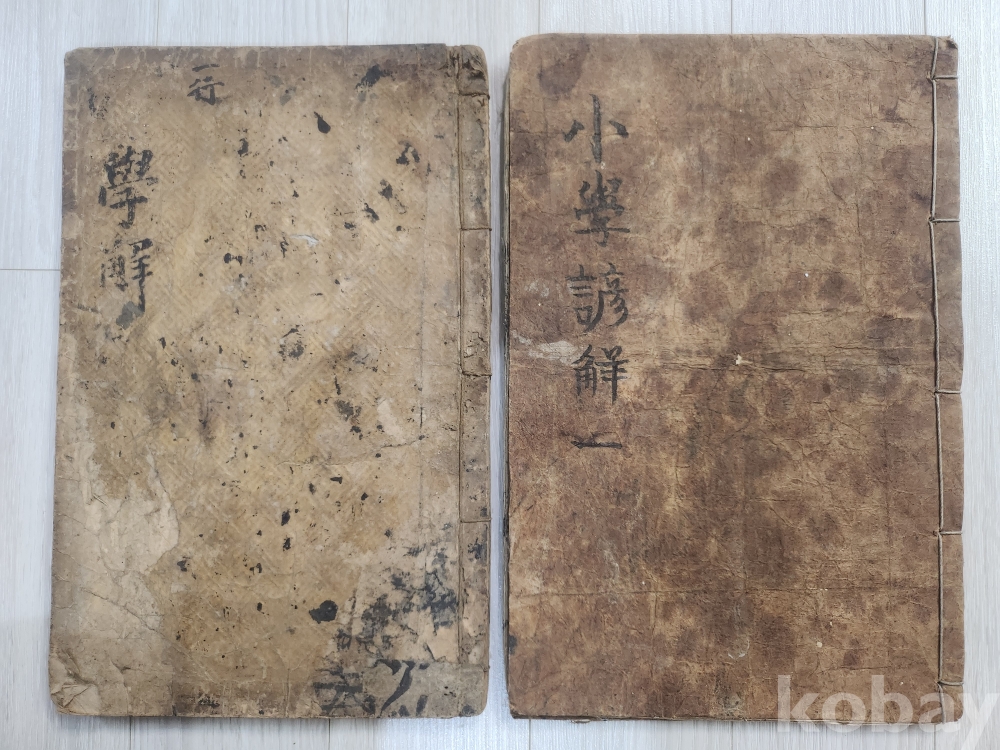 一行
學解
小學諺解一
kobay